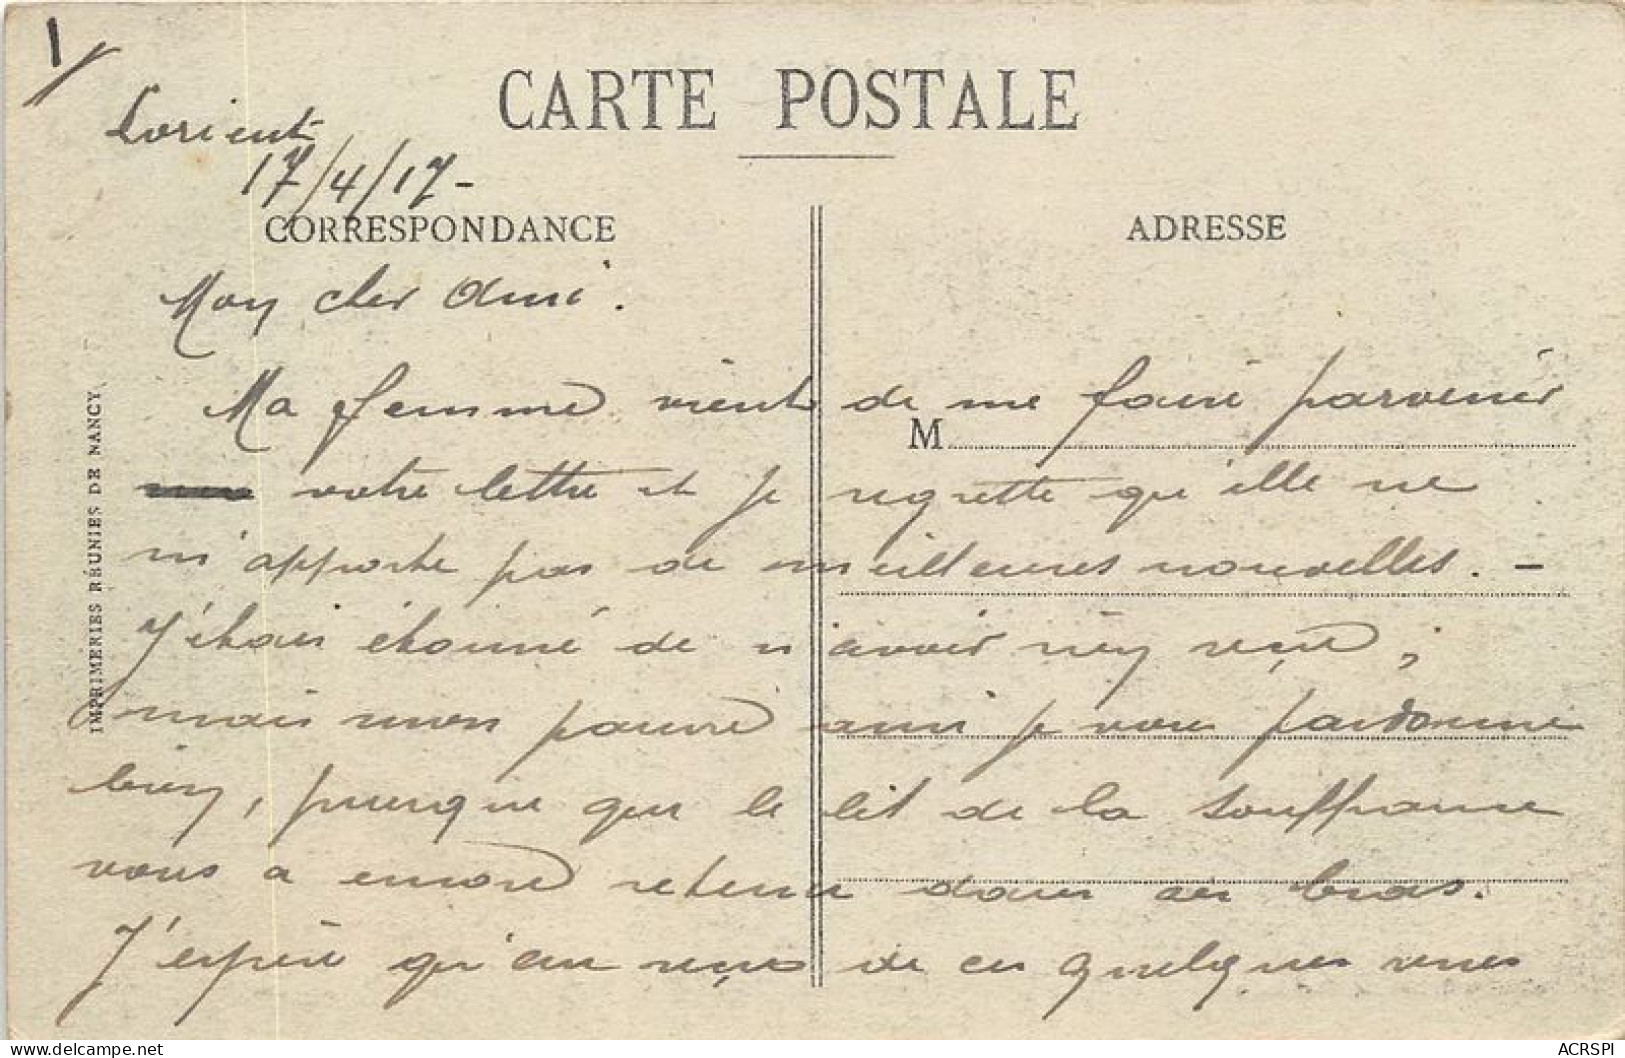 1/
CARTE POSTALE
Lorient
17/4/17-
CORRESPONDANCE
ADRESSE
Mon cher Ami.
Ma femme vient de me faire parvenir
M
votre lettre et je regrette qu'elle ne
m'apporte pas de meilleures nouvelles. -
J'étais étonné de n'avoir rien reçu,
mais mon pauvre ami je vous pardonne
bien, puisque le lit de la souffrance
vous a encore retenu dans ses bras.
J'espère qu'au reçu de ces quelques unes
IMPRIMERIES RÉUNIES DE NANCY
ACRSPI